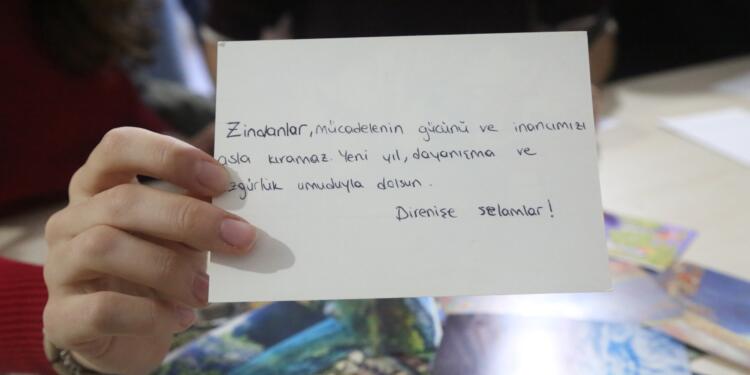 Zindanlar, mücadelenin gücünü ve inancımızı
asla kıramaz. Yeni yıl, dayanışma ve
özgürlük umuduyla dolsun.
Direnişe selamlar!